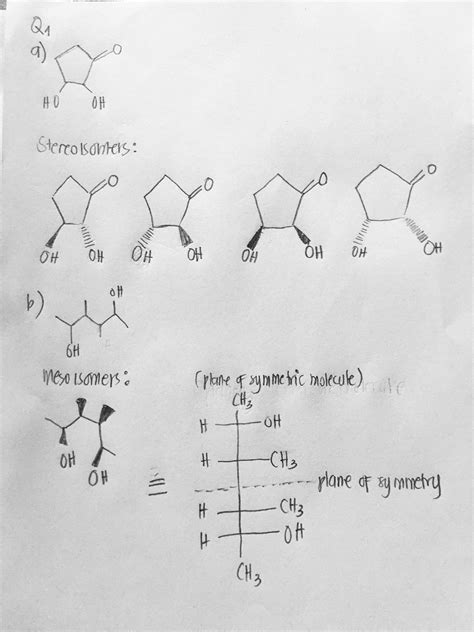 Q1
a)
O
HO OH
Stereoisomers:
O O O O
OH OH OH OH OH OH OH OH
b)
OH
OH
Meso isomers: (plane of symmetric molecule)
CH3
H OH
OH H CH3
OH
≡ plane of symmetry
H CH3
H OH
CH3